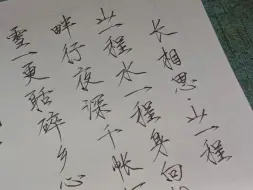 长相思·山一程
山一程水一程身向
畔行夜深千帐
雪一更聒碎乡心